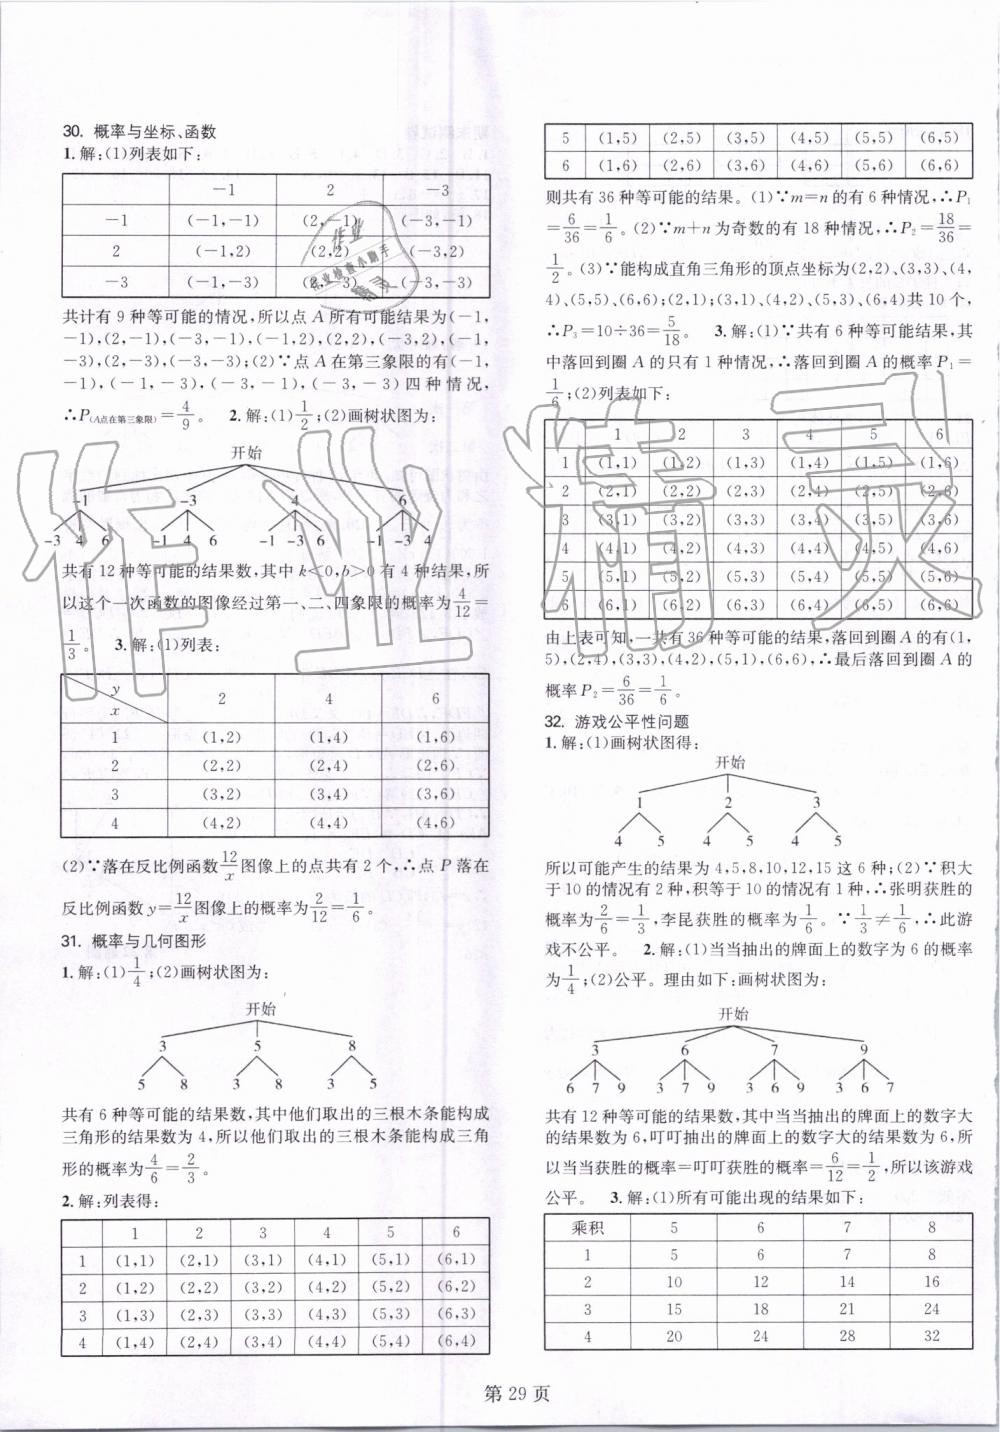 30. 概率与坐标、函数
1. 解:(1)列表如下:
-1 2 -3
-1 (-1,-1) (2,-1) (-3,-1)
2 (-1,2) (2,2) (-3,2)
-3 (-1,-3) (2,-3) (-3,-3)
共计有 9 种等可能的情况,所以点 A 所有可能结果为(-1,
-1),(2,-1),(-3,-1),(-1,2),(2,2),(-3,2),(-1,
-3),(2,-3),(-3,-3);(2)∵点 A 在第三象限的有(-1,
-1),(-1,-3),(-3,-1),(-3,-3)四种情况,
∴P(A点在第三象限)=4/9。 2. 解:(1)1/2;(2)画树状图为:
开始
-1 -3 4 6
-3 4 6 -1 4 6 -1 -3 6 -1 -3 4
共有 12 种等可能的结果数,其中 k<0,b>0 有 4 种结果,所
以这个一次函数的图像经过第一、二、四象限的概率为4/12=
1/3。 3. 解:(1)列表:
y
x 2 4 6
1 (1,2) (1,4) (1,6)
2 (2,2) (2,4) (2,6)
3 (3,2) (3,4) (3,6)
4 (4,2) (4,4) (4,6)
(2)∵落在反比例函数12/x图像上的点共有 2 个,∴点 P 落在
反比例函数y=12/x图像上的概率为2/12=1/6。
31. 概率与几何图形
1. 解:(1)1/4;(2)画树状图为:
开始
3 5 8
5 8 3 8 3 5
共有 6 种等可能的结果数,其中他们取出的三根木条能构成
三角形的结果数为 4,所以他们取出的三根木条能构成三角
形的概率为4/6=2/3。
2. 解:列表得:
1 2 3 4 5 6
1 (1,1) (2,1) (3,1) (4,1) (5,1) (6,1)
2 (1,2) (2,2) (3,2) (4,2) (5,2) (6,2)
3 (1,3) (2,3) (3,3) (4,3) (5,3) (6,3)
4 (1,4) (2,4) (3,4) (4,4) (5,4) (6,4)
5 (1,5) (2,5) (3,5) (4,5) (5,5) (6,5)
6 (1,6) (2,6) (3,6) (4,6) (5,6) (6,6)
则共有 36 种等可能的结果。(1)∵m=n 的有 6 种情况,∴P₁
=6/36=1/6。(2)∵m+n 为奇数的有 18 种情况,∴P₂=18/36=
1/2。(3)∵能构成直角三角形的顶点坐标为(2,2),(3,3),(4,
4),(5,5),(6,6);(2,1);(3,1),(4,2),(5,3),(6,4)共 10 个,
∴P₃=10÷36=5/18。 3. 解:(1)∵共有 6 种等可能结果,其
中落回到圈 A 的只有 1 种情况,∴落回到圈 A 的概率 P₁=
1/6;(2)列表如下:
1 2 3 4 5 6
1 (1,1) (1,2) (1,3) (1,4) (1,5) (1,6)
2 (2,1) (2,2) (2,3) (2,4) (2,5) (2,6)
3 (3,1) (3,2) (3,3) (3,4) (3,5) (3,6)
4 (4,1) (4,2) (4,3) (4,4) (4,5) (4,6)
5 (5,1) (5,2) (5,3) (5,4) (5,5) (5,6)
6 (6,1) (6,2) (6,3) (6,4) (6,5) (6,6)
由上表可知,一共有 36 种等可能的结果,落回到圈 A 的有(1,
5),(2,4),(3,3),(4,2),(5,1),(6,6),∴最后落回到圈 A 的
概率 P₂=6/36=1/6。
32. 游戏公平性问题
1. 解:(1)画树状图得:
开始
1 2 3
4 5 4 5 4 5
所以可能产生的结果为 4,5,8,10,12,15 这 6 种;(2)∵积大
于 10 的情况有 2 种,积等于 10 的情况有 1 种,∴张明获胜的
概率为2/6=1/3,李昆获胜的概率为1/6。∵1/3≠1/6,∴此游
戏不公平。 2. 解:(1)当当抽出的牌面上的数字为 6 的概率
为1/4;(2)公平。理由如下:画树状图为:
开始
3 6 7 9
6 7 9 3 7 9 3 6 9 3 6 7
共有 12 种等可能的结果数,其中当当抽出的牌面上的数字大
的结果数为 6,叮叮抽出的牌面上的数字大的结果数为 6,所
以当当获胜的概率=叮叮获胜的概率=6/12=1/2,所以该游戏
公平。 3. 解:(1)所有可能出现的结果如下:
乘积 5 6 7 8
1 5 6 7 8
2 10 12 14 16
3 15 18 21 24
4 20 24 28 32
第 29 页
作业精灵
作业
作业检查小助手